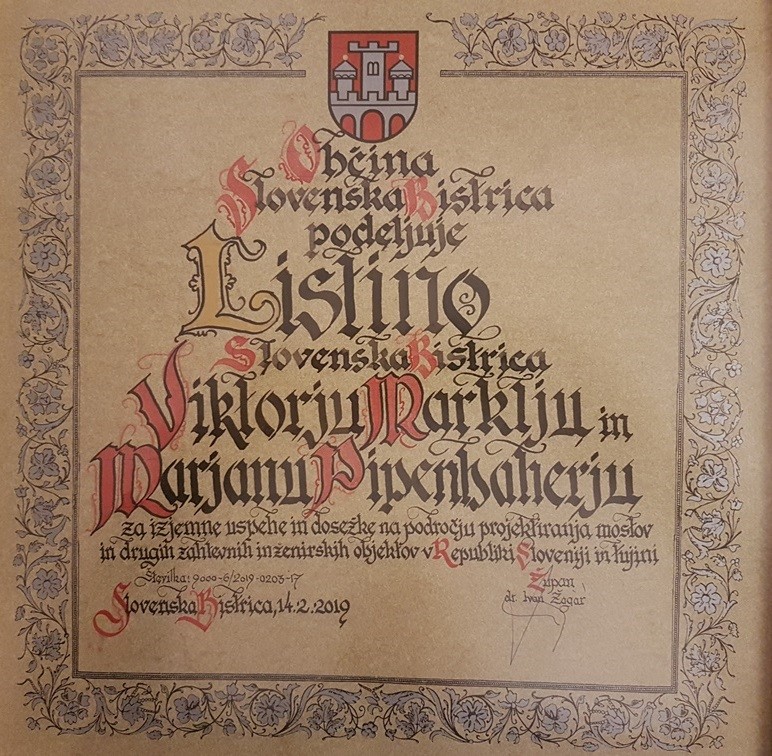 Občina
Slovenska Bistrica
podeljuje
Listino
Slovenska Bistrica
Viktorju Marklju in
Marjanu Pipenbaherju
za izjemne uspehe in dosežke na področju projektiranja mostov
in drugih zahtevnih inženirskih objektov v Republiki Sloveniji in tujini
Številka: 9000-6/2019-0203-17
Župan
dr. Ivan Žagar
Slovenska Bistrica, 14.2.2019